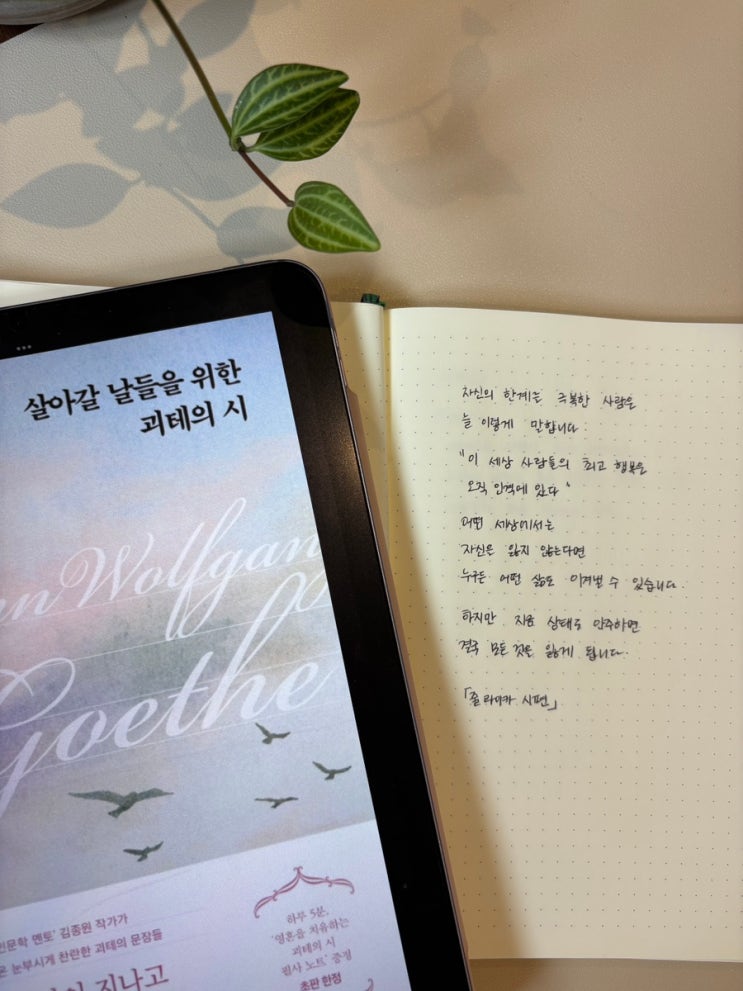 살아갈 날들을 위한
괴테의 시
nn Wolfgan
Goethe
인문학 멘토' 김종원 작가가
눈부시게 찬란한 괴테의 문장들
지나고
하루 5분,
'영혼을 치유하는
괴테의 시
필사 노트' 증정
초판 한정
자신의 한계를 극복한 사람은
늘 이렇게 말합니다.
"이 세상 사람들의 최고 행복은
오직 인격에 있다"
어떤 세상에서든
자신을 잃지 않는다면
누구든 어떤 삶도 이겨낼 수 있습니다.
하지만 지금 상태로 안주하면
결국 모든 것을 잃게 됩니다.
「줄라이카 시편」